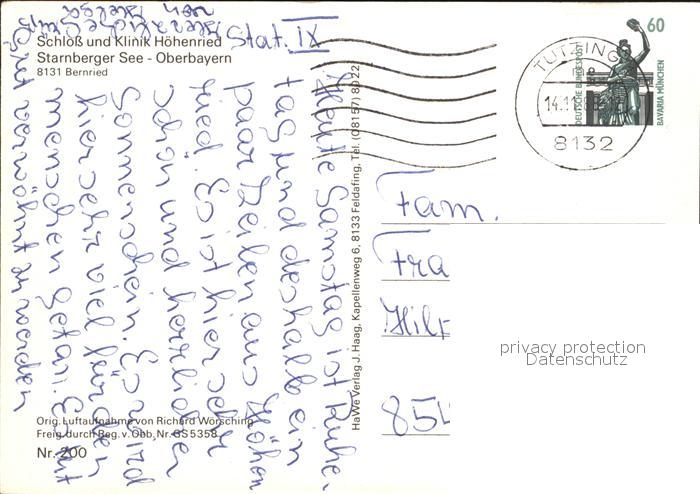 Schloß und Klinik Höhenried
Starnberger See - Oberbayern
8131 Bernried
Stat. IX
Heute Samstag ist Ruhe-
tag und deshalb ein
paar Zeilen aus Höhen
ried. Es ist hier sehr
schön und herrlicher
Sonnenschein. Es wird
hier sehr viel für den
menschen getan. Es tut
gut verwöhnt zu werden
Herzliche Grüße
von Helga
Orig. Luftaufnahme von Richard Wörsching
Freig. durch Reg. v. Obb. Nr. GS 5358
Nr. 200
HaWe Verlag J. Haag, Kapellenweg 6, 8133 Feldafing, Tel. (08157) 8022
TUTZING
14.11.
8132
60
DEUTSCHE BUNDESPOST
BAVARIA MÜNCHEN
Fam.
Fra
Hilp
854
privacy protection
Datenschutz